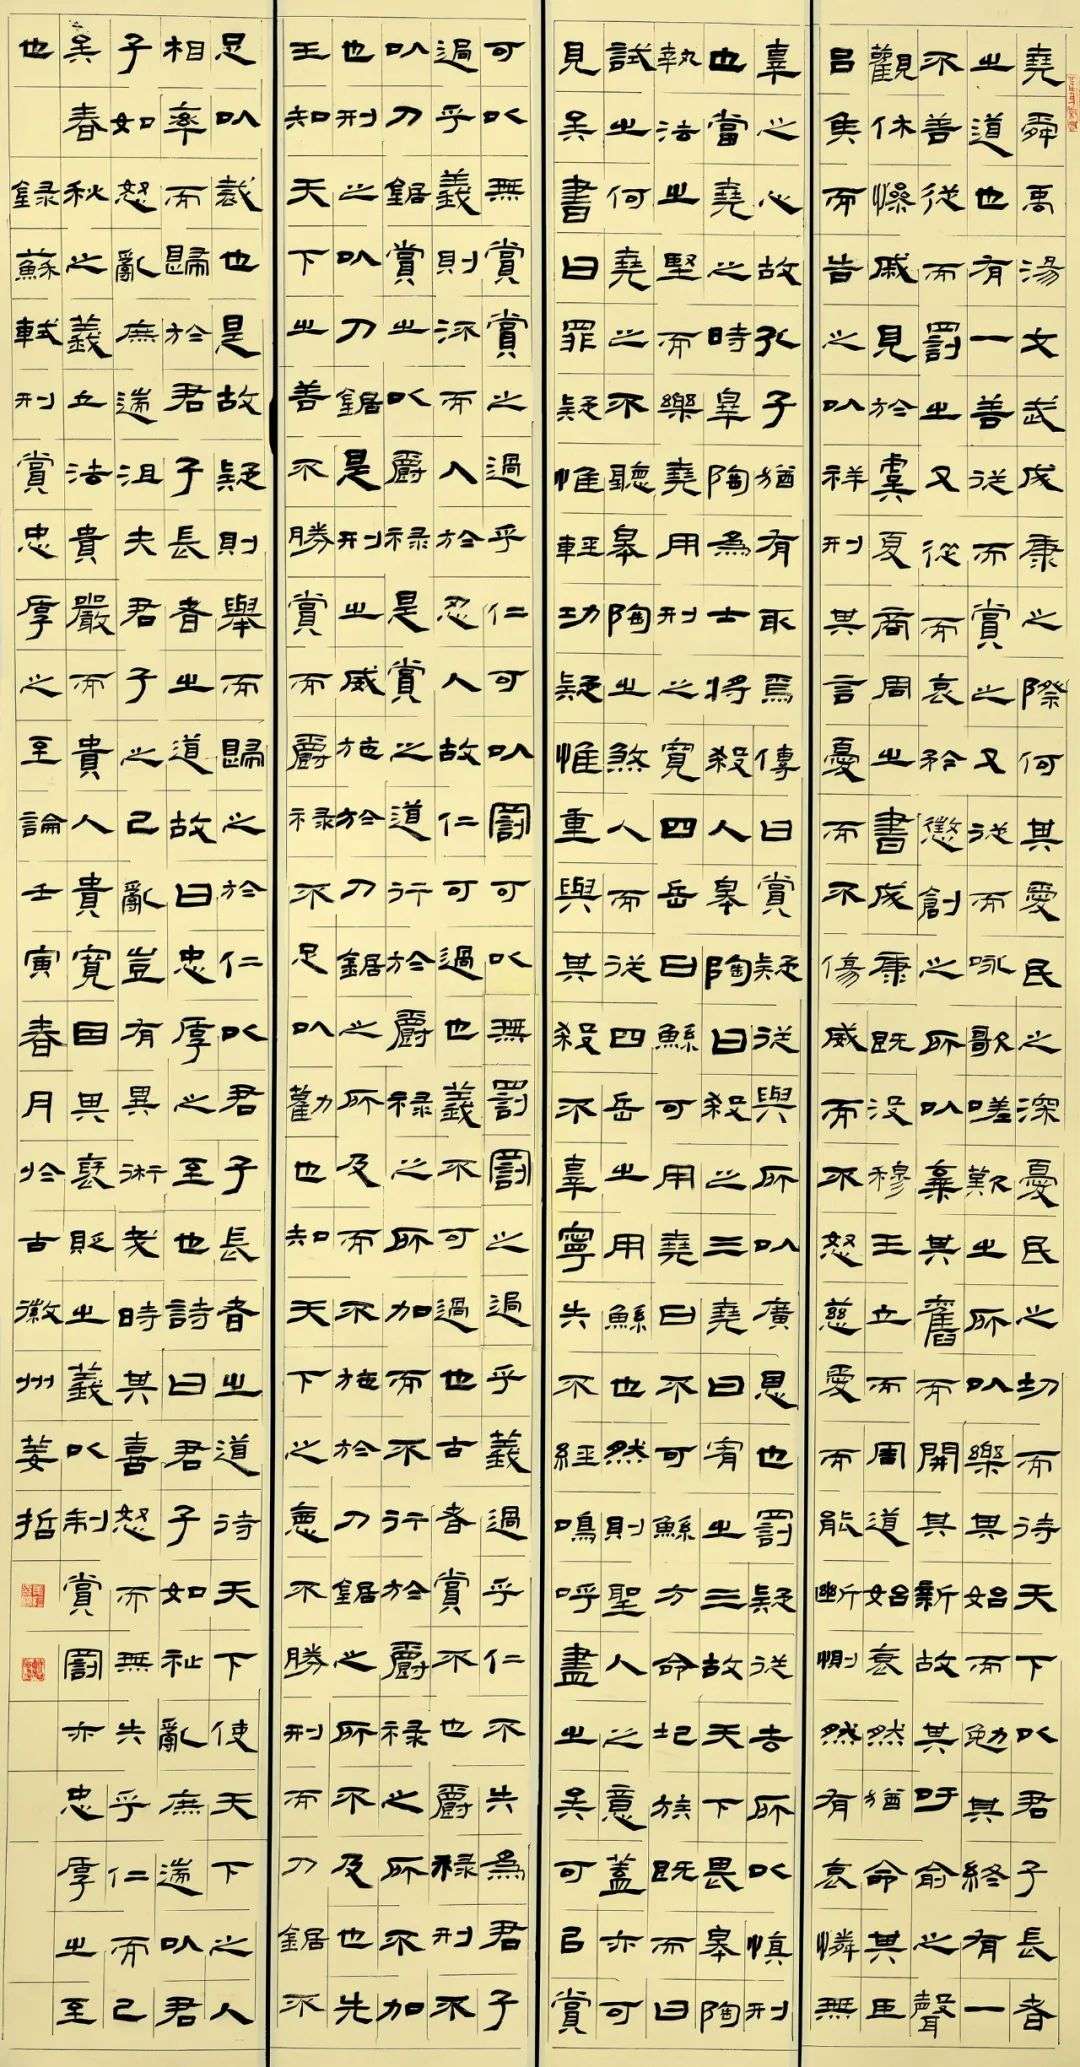 堯舜禹湯文武成康之際何其愛民之深憂民之切而待天下以君子長者
之道也有一善從而賞之又從而咏歌嗟歎之所以樂其始而勉其終有一
不善從而罰之又從而哀矜懲創之所以棄其舊而開其新故其吁俞之聲
觀休懆戚見於虞夏商周之書成康既没穆王立而周道始衰然猶命其臣
吕侯而告之以祥刑其言憂而不傷威而不怒慈愛而能斷惻然有哀憐無
辜之心故孔子猶有取焉傳曰賞疑從與所以廣恩也罰疑從去所以慎刑
也當堯之時皋陶為士將殺人皋陶曰殺之三堯曰宥之三故天下畏皋陶
執法之堅而樂堯用刑之寬四岳曰鯀可用堯曰不可鯀方命圮族既而曰
試之何堯之不聽皋陶之煞人而從四岳之用鯀也然則聖人之意蓋亦可
見矣書曰罪疑惟輕功疑惟重與其殺不辜寧失不經鳴呼盡之矣可以賞
可以無賞賞之過乎仁可以罰可以無罰罰之過乎義過乎仁不失為君子
過乎義則流而入於忍人故仁可過也義不可過也古者賞不也爵禄刑不
以刀鋸賞之以爵禄是賞之道行於爵禄之所加而不行於爵禄之所不加
也刑之以刀鋸是刑之威施於刀鋸之所及而不施於刀鋸之所不及也先
王知天下之善不勝賞而爵禄不足以勸也知天下之惡不勝刑而刀鋸不
足以裁也是故疑則舉而歸之於仁以君子長者之道待天下使天下之人
相率而歸於君子長者之道故曰忠厚之至也詩曰君子如祉亂庶遄以君
子如怒亂庶遄沮夫君子之已亂豈有異術哉時其喜怒而無失乎仁而已
矣春秋之義立法貴嚴而責人貴寬因其褒貶之義以制賞罰亦忠厚之至
也 録蘇軾刑賞忠厚之至論壬寅春月於古徽州姜哲